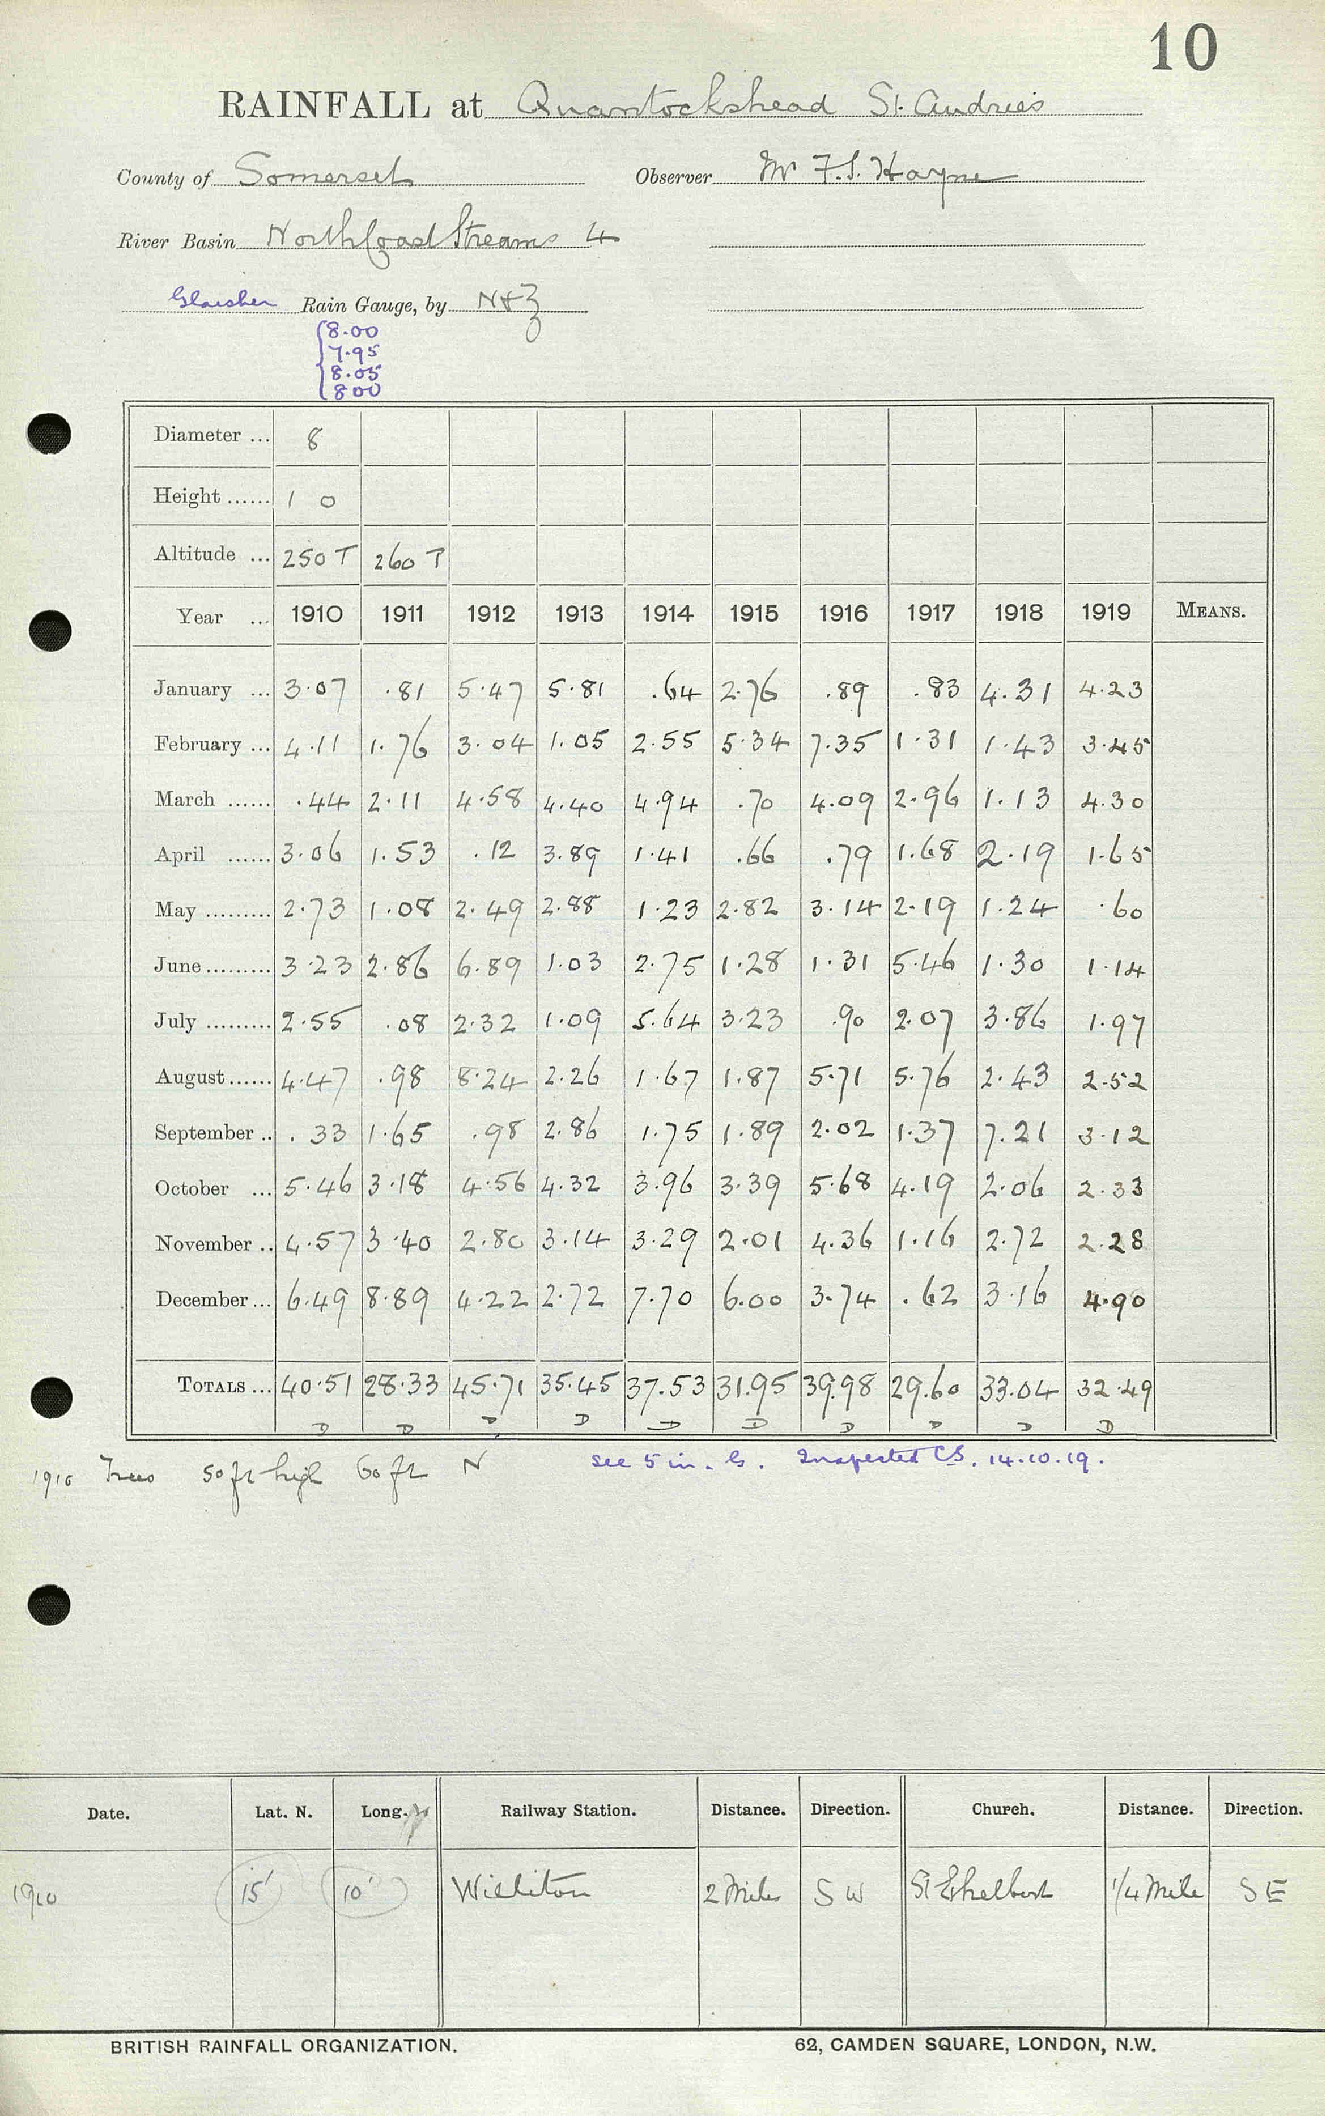 10
RAINFALL at Quantockshead St. Audries
County of Somerset Observer Mr F.S. Hayne
River Basin North Coast Streams 4
Glaisher Rain Gauge, by N+Z
8.00
7.95
8.05
8.00
Diameter ... 8
Height ...... 1 0
Altitude ... 250 T 260 T
Year ... 1910 1911 1912 1913 1914 1915 1916 1917 1918 1919 MEANS.
January ... 3.07 .81 5.47 5.81 .64 2.76 .89 .83 4.31 4.23
February ... 4.11 1.76 3.04 1.05 2.55 5.34 7.35 1.31 1.43 3.45
March ...... .44 2.11 4.58 4.40 4.94 .70 4.09 2.96 1.13 4.30
April ...... 3.06 1.53 .12 3.89 1.41 .66 .79 1.68 2.19 1.65
May ......... 2.73 1.08 2.49 2.88 1.23 2.82 3.14 2.19 1.24 .60
June ......... 3.23 2.86 6.89 1.03 2.75 1.28 1.31 5.46 1.30 1.14
July ......... 2.55 .08 2.32 1.09 5.64 3.23 .90 2.07 3.86 1.97
August ...... 4.47 .98 8.24 2.26 1.67 1.87 5.71 5.76 2.43 2.52
September .. .33 1.65 .98 2.86 1.75 1.89 2.02 1.37 7.21 3.12
October ... 5.46 3.18 4.56 4.32 3.96 3.39 5.68 4.19 2.06 2.33
November .. 4.57 3.40 2.80 3.14 3.29 2.01 4.36 1.16 2.72 2.28
December ... 6.49 8.89 4.22 2.72 7.70 6.00 3.74 .62 3.16 4.90
TOTALS ... 40.51 28.33 45.71 35.45 37.53 31.95 39.98 29.60 33.04 32.49
D D D D D D D D D D
1910 Trees 50 ft high 60 ft N see 5 in. G. Inspected C.S. 14.10.19.
Date. Lat. N. Long. W Railway Station. Distance. Direction. Church. Distance. Direction.
1910 15' 10' Williton 2 Miles SW St Ethelbert 1/4 Mile SE
BRITISH RAINFALL ORGANIZATION. 62, CAMDEN SQUARE, LONDON, N.W.